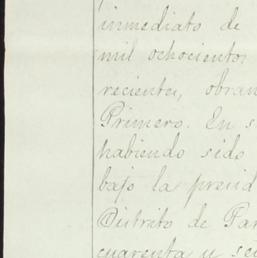 inmediato de
mil ochocientos
recienta, obran
Primero. En s
habiendo sido
bajo la presid
Distrito de Par
cuarenta y sei